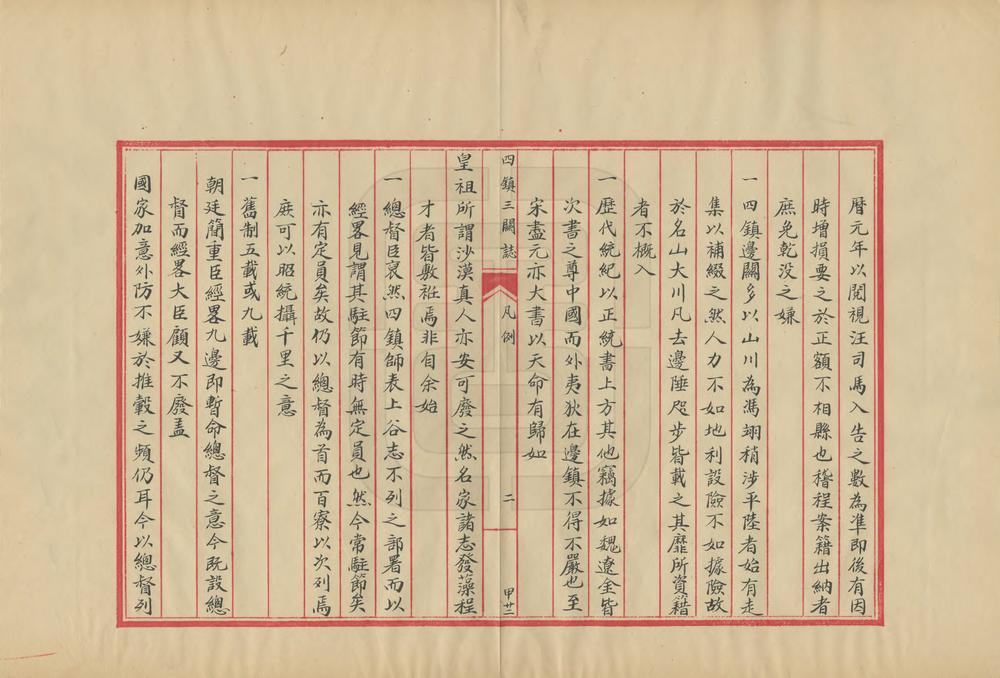 曆元年以閱視汪司馬入告之數為準即後有因
時增損要之於正額不相縣也稽程案籍出納者
庶免乾没之嫌
一四鎮邊關多以山川為馮翊稍涉平陸者始有走
集以補綴之然人力不如地利設險不如據險故
於名山大川凡去邊陲咫步皆載之其靡所資籍
者不概入
一歷代統紀以正統書上方其他竊據如魏遼金皆
次書之尊中國而外夷狄在邊鎮不得不嚴也至
宋盡元亦大書以天命有歸如
四鎮三關誌 凡例 二 甲廿二
皇祖所謂沙漠真人亦安可廢之然名家諸志發藻程
才者皆敷袵焉非自余始
一總督臣裒然四鎮師表上谷志不列之部署而以
經畧見謂其駐節有時無定員也然今常駐節矣
亦有定員矣故仍以總督為首而百寮以次列焉
庶可以昭統攝千里之意
一舊制五載或九載
朝廷簡重臣經畧九邊即暫命總督之意今既設總
督而經畧大臣顧又不廢盖
國家加意外防不嫌於推轂之頻仍耳今以總督列